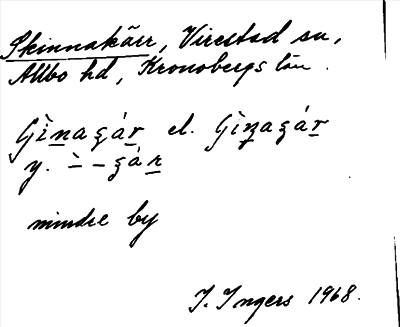 Skinnakärr, Virestad sn,
Allbo hd, Kronobergs län.
Gìnaʒár el. Gìnaʒár
y. ̀ – – ʒár
mindre by
I. Ingers 1968.